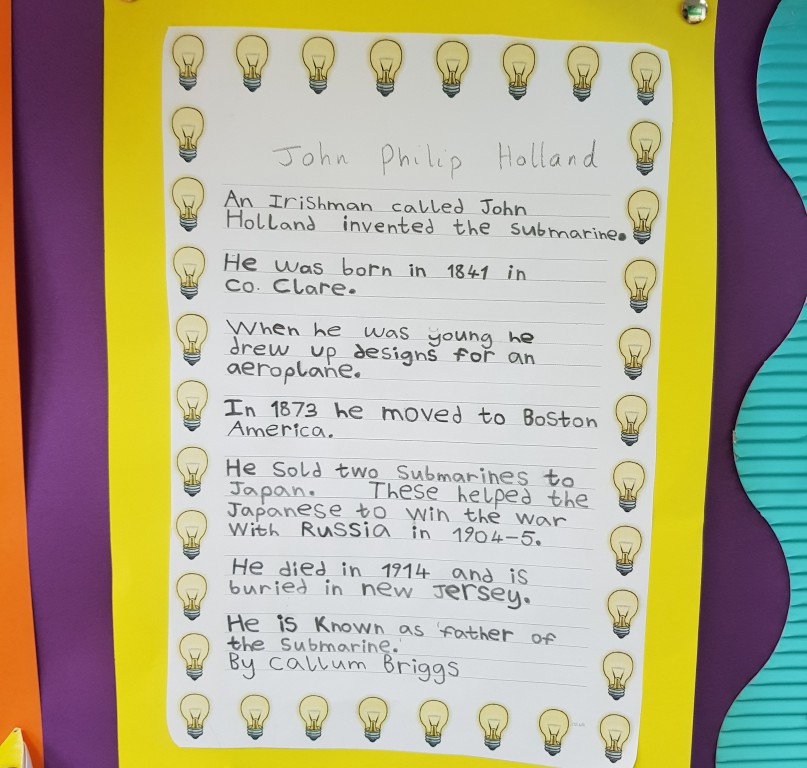 John Philip Holland
An Irishman called John
Holland invented the submarine.
He was born in 1841 in
Co. Clare.
When he was young he
drew up designs for an
aeroplane.
In 1873 he moved to Boston
America.
He sold two submarines to
Japan. These helped the
Japanese to win the war
with Russia in 1904-5.
He died in 1914 and is
buried in new Jersey.
He is known as 'father of
the submarine.'
By Callum Briggs